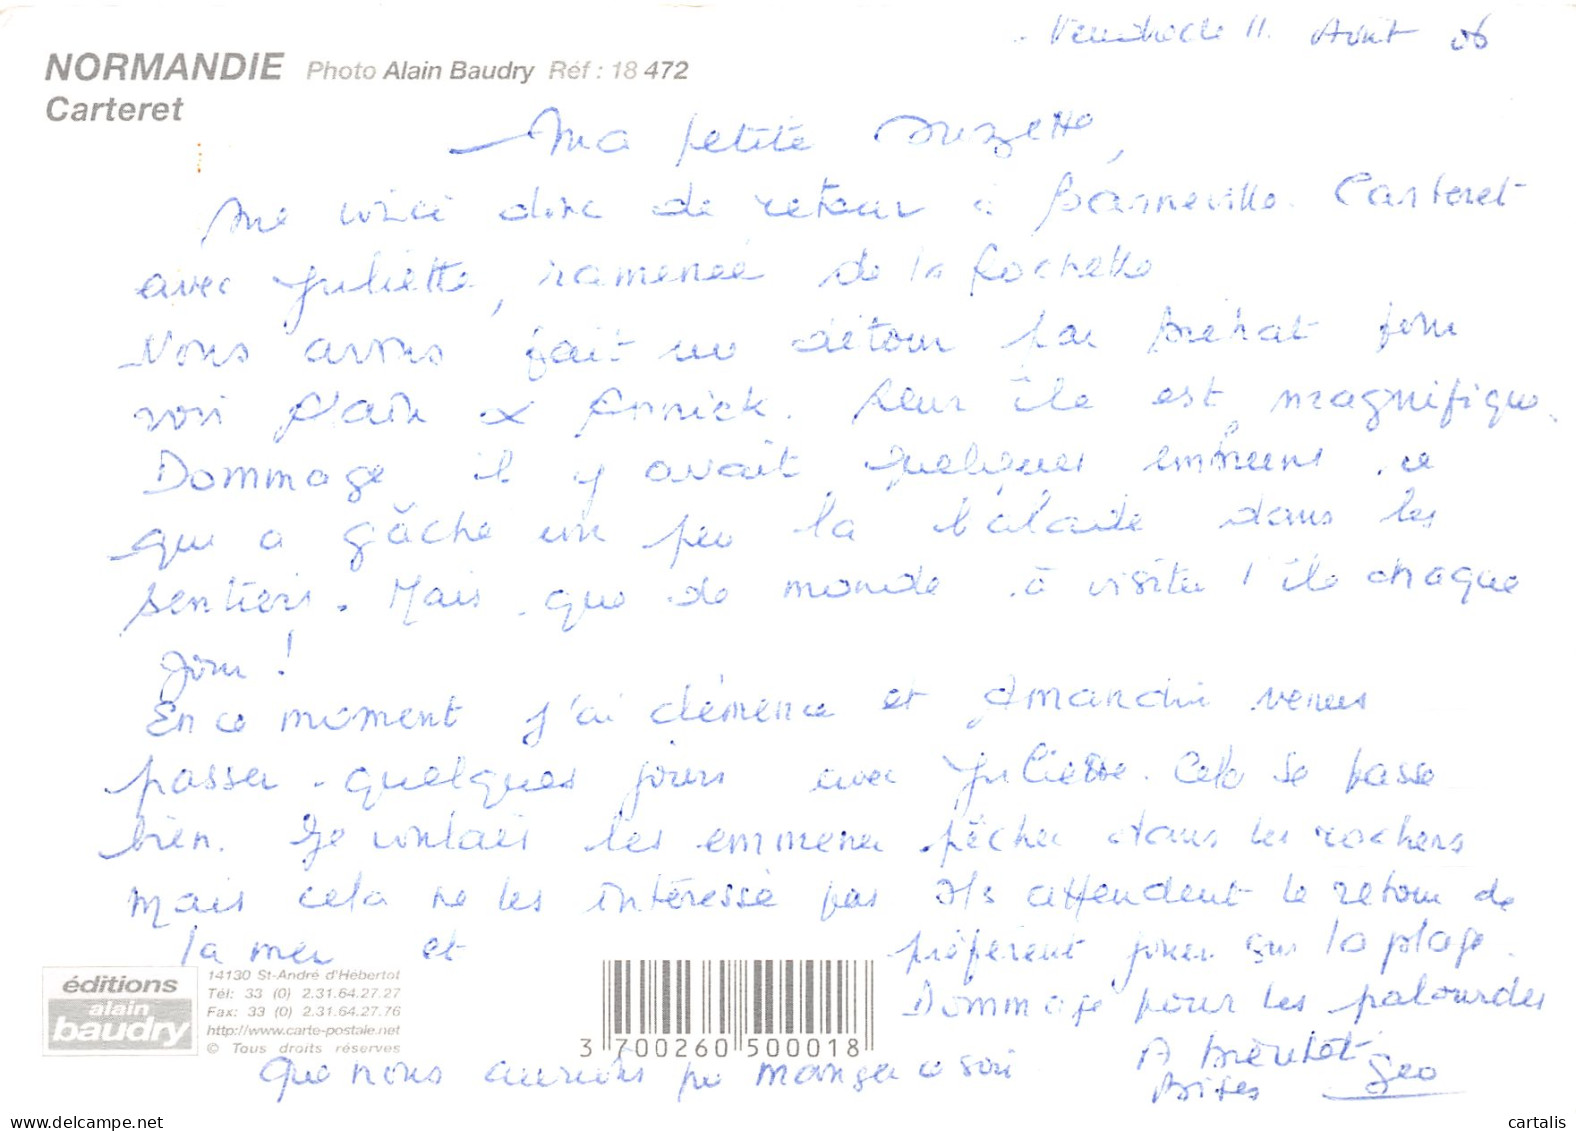 Vendredi 11 Août 06
NORMANDIE Photo Alain Baudry Réf : 18 472
Carteret
Ma petite Suzette,
Me voici donc de retour à Barneville. Carteret
avec Juliette, ramenée de la Rochelle
Nous avons fait un détour par Bréhat pour
voir Alain & Annick. Leur île est magnifique.
Dommage il y avait quelques embruns ce
qui a gâché un peu la balade dans les
sentiers. Mais que de monde à visiter l'île chaque
jour !
En ce moment j'ai Clémence et Amandine venues
passer quelques jours avec Juliette. Cela se passe
bien. Je voulais les emmener pêcher dans les rochers
mais cela ne les intéresse pas Ils attendent le retour de
la mer et préfèrent jouer sur la plage.
Dommage pour les palourdes
Que nous aurions pu manger ce soir
A Bientôt
Bises Geo
éditions
alain
baudry
14130 St-André d'Hébertot
Tél: 33 (0) 2.31.64.27.27
Fax: 33 (0) 2.31.64.27.76
http://www.carte-postale.net
© Tous droits réservés
3 700260 500018
www.delcampe.net
cartalis